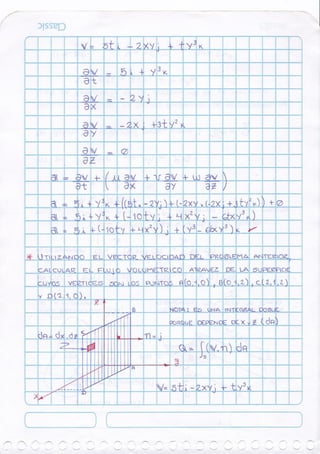 V = 5ti - 2xyj + ty³k
∂V/∂t = 5i + y³k
∂V/∂x = -2yj
∂V/∂y = -2xj + 3ty²k
∂V/∂z = ∅
a = ∂V/∂t + (u ∂V/∂x + v ∂V/∂y + w ∂V/∂z)
a = 5i + y³k + ((5t·-2yj) + (-2xy·(-2xj + 3ty²k)) + ∅
a = 5i + y³k + (-10tyj + 4x²yj - 6txy³k)
a = 5i + (-10ty + 4x²y)j + (y³ - 6txy³)k
* UTILIZANDO EL VECTOR VELOCIDAD DEL PROBLEMA ANTERIOR,
CALCULAR EL FLUJO VOLUMÉTRICO A TRAVÉZ DE LA SUPERFICIE
CUYOS VERTICES SON LOS PUNTOS A(0,1,0), B(0,1,2), C(2,1,2)
Y D(2,1,0).
z
B
NOTA: ES UNA INTEGRAL DOBLE
PORQUE DEPENDE DE X, Z (dA)
dA = dx·dz
n = j
Q = ∫s (V·n) dA
A
y
V = 5ti - 2xyj + ty³k
D
x